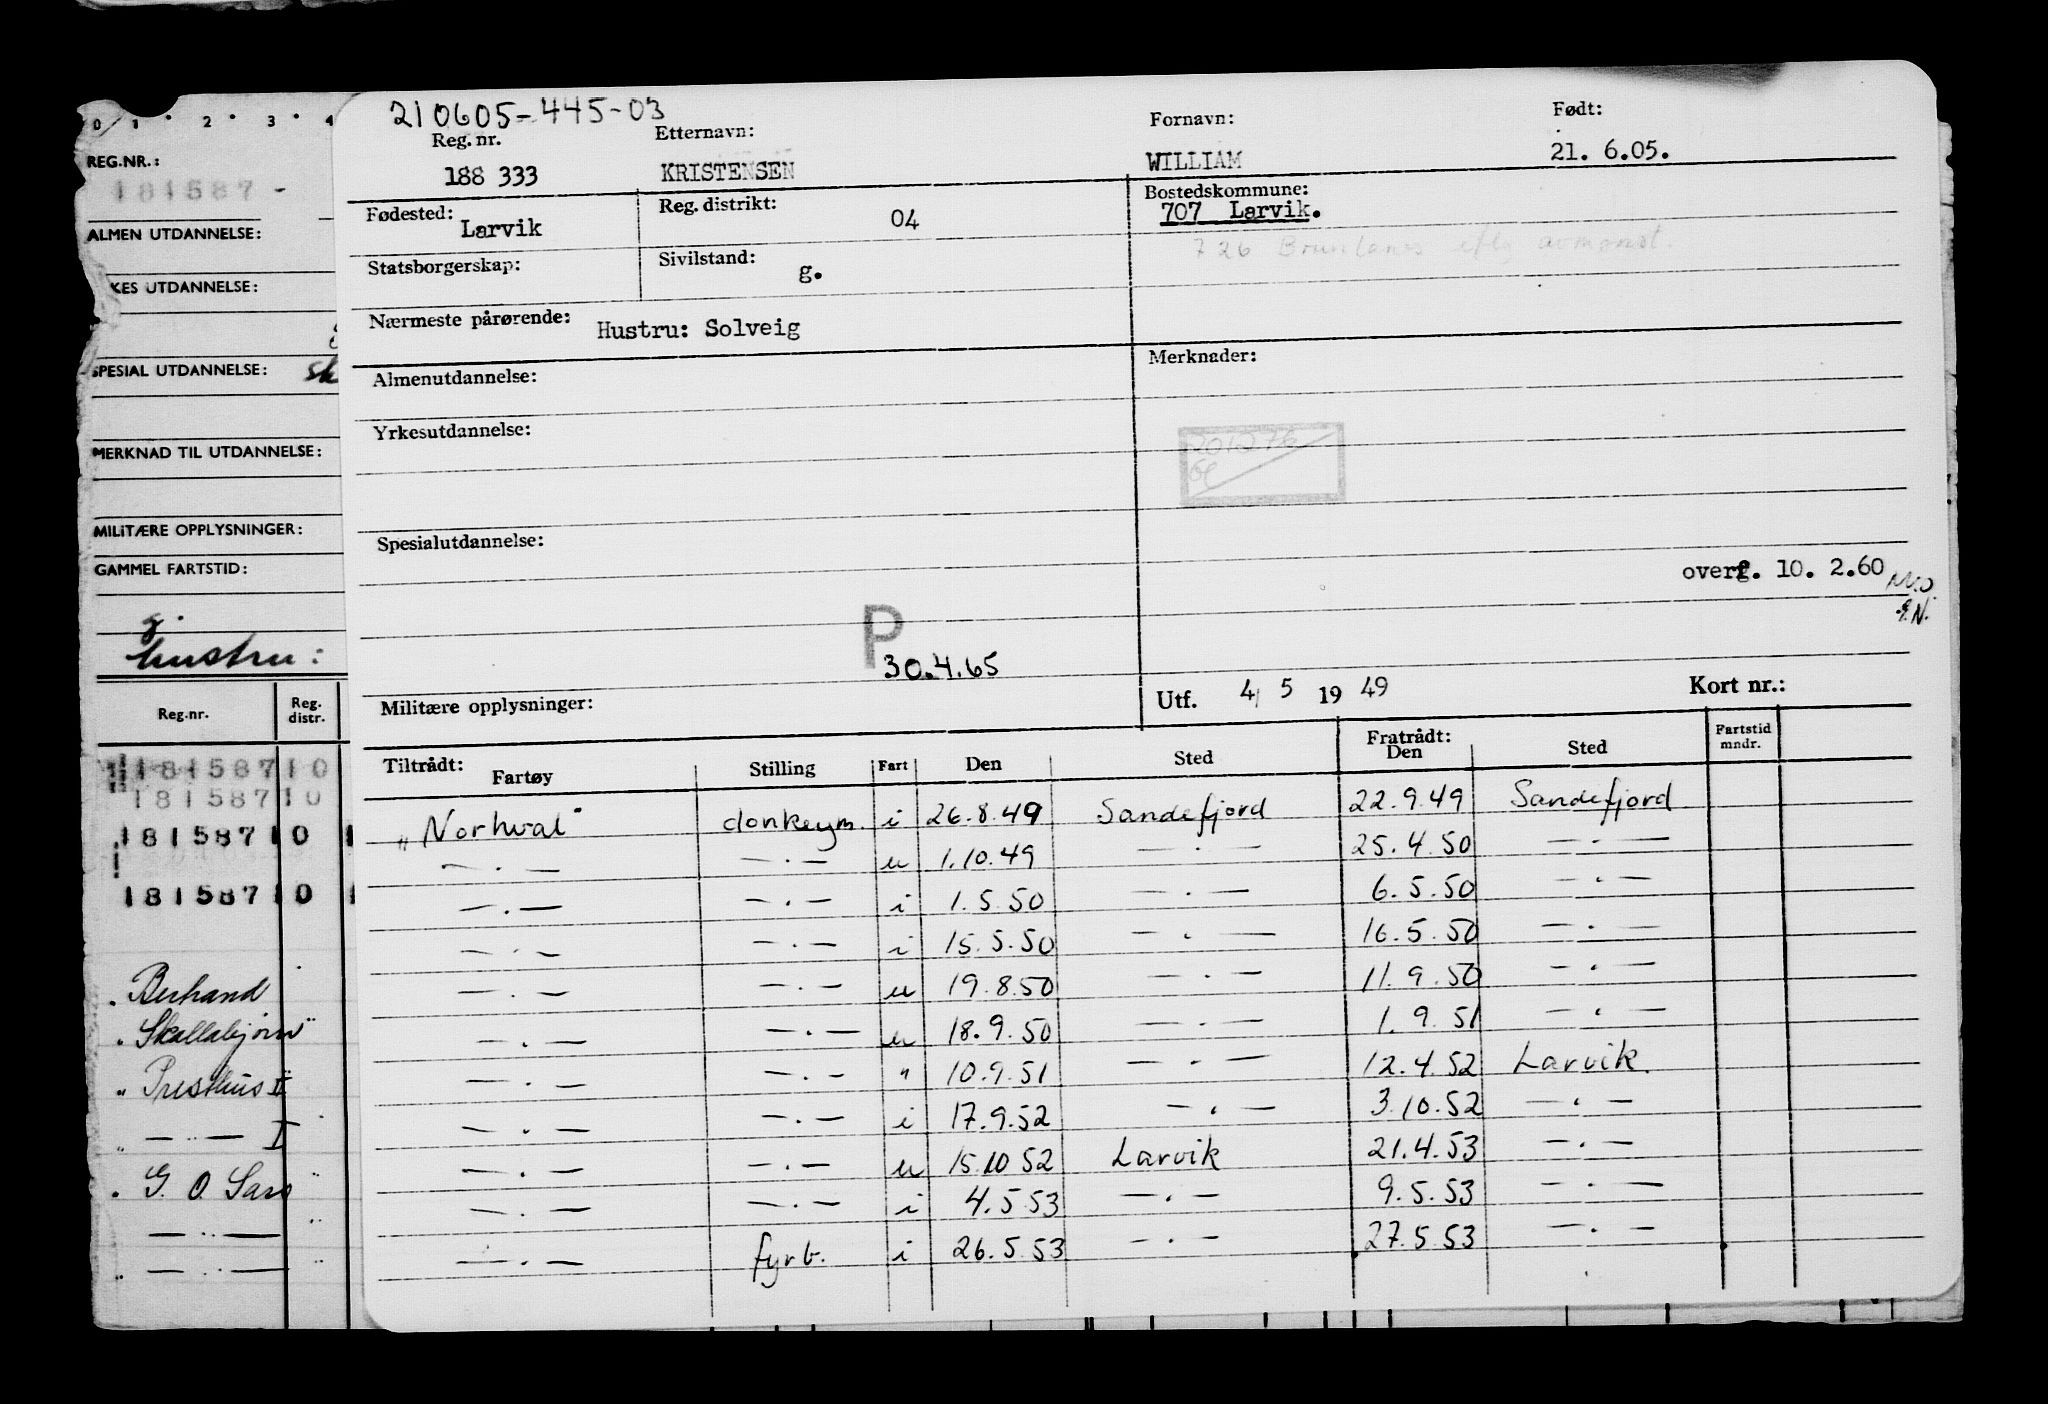 210605-445-03
Reg. nr. Etternavn: Fornavn: Født:
188 333 KRISTENSEN WILLIAM 21. 6.05.
Fødested: Larvik Reg. distrikt: 04 Bostedskommune: 707 Larvik.
726 Brunlanes avmønst.
Statsborgerskap: Sivilstand: g.
Nærmeste pårørende: Hustru: Solveig
Almenutdannelse: Merknader:
Yrkesutdannelse:
Spesialutdannelse:
overf. 10. 2.60
P
30.4.65
Militære opplysninger: Utf. 4 5 19 49 Kort nr.:
Tiltrådt: Fartøy Stilling Fart Den Sted Fratrådt: Den Sted Fartstid mndr.
"Norhval" donkeym. i 26.8.49 Sandefjord 22.9.49 Sandefjord
— . — — . — u 1.10.49 — . — 25.4.50 — . —
— . — — . — i 1.5.50 — . — 6.5.50 — . —
— . — — . — i 15.5.50 — . — 16.5.50 — . —
— . — — . — u 19.8.50 — . — 11.9.50 — . —
— . — — . — u 18.9.50 — . — 1.9.51 — . —
— . — — . — " 10.9.51 — . — 12.4.52 Larvik.
— . — — . — i 17.9.52 — . — 3.10.52 — . —
— . — — . — u 15.10 52 Larvik 21.4.53 — . —
— . — — . — i 4.5.53 — . — 9.5.53 — . —
— . — fyrb. i 26.5.53 — . — 27.5.53 — . —
0 1 2 3 4
REG.NR.:
181587 -
ALMEN UTDANNELSE:
KES UTDANNELSE:
SPESIAL UTDANNELSE:
MERKNAD TIL UTDANNELSE:
MILITÆRE OPPLYSNINGER:
GAMMEL FARTSTID:
g.
hustru:
Reg.nr. Reg. distr.
181587 10
181587 10
181587 10
181587 10
"Skallabjørn"
"Presthus II
" — .. — I
" G. O Sars
— .. —
" — .. —